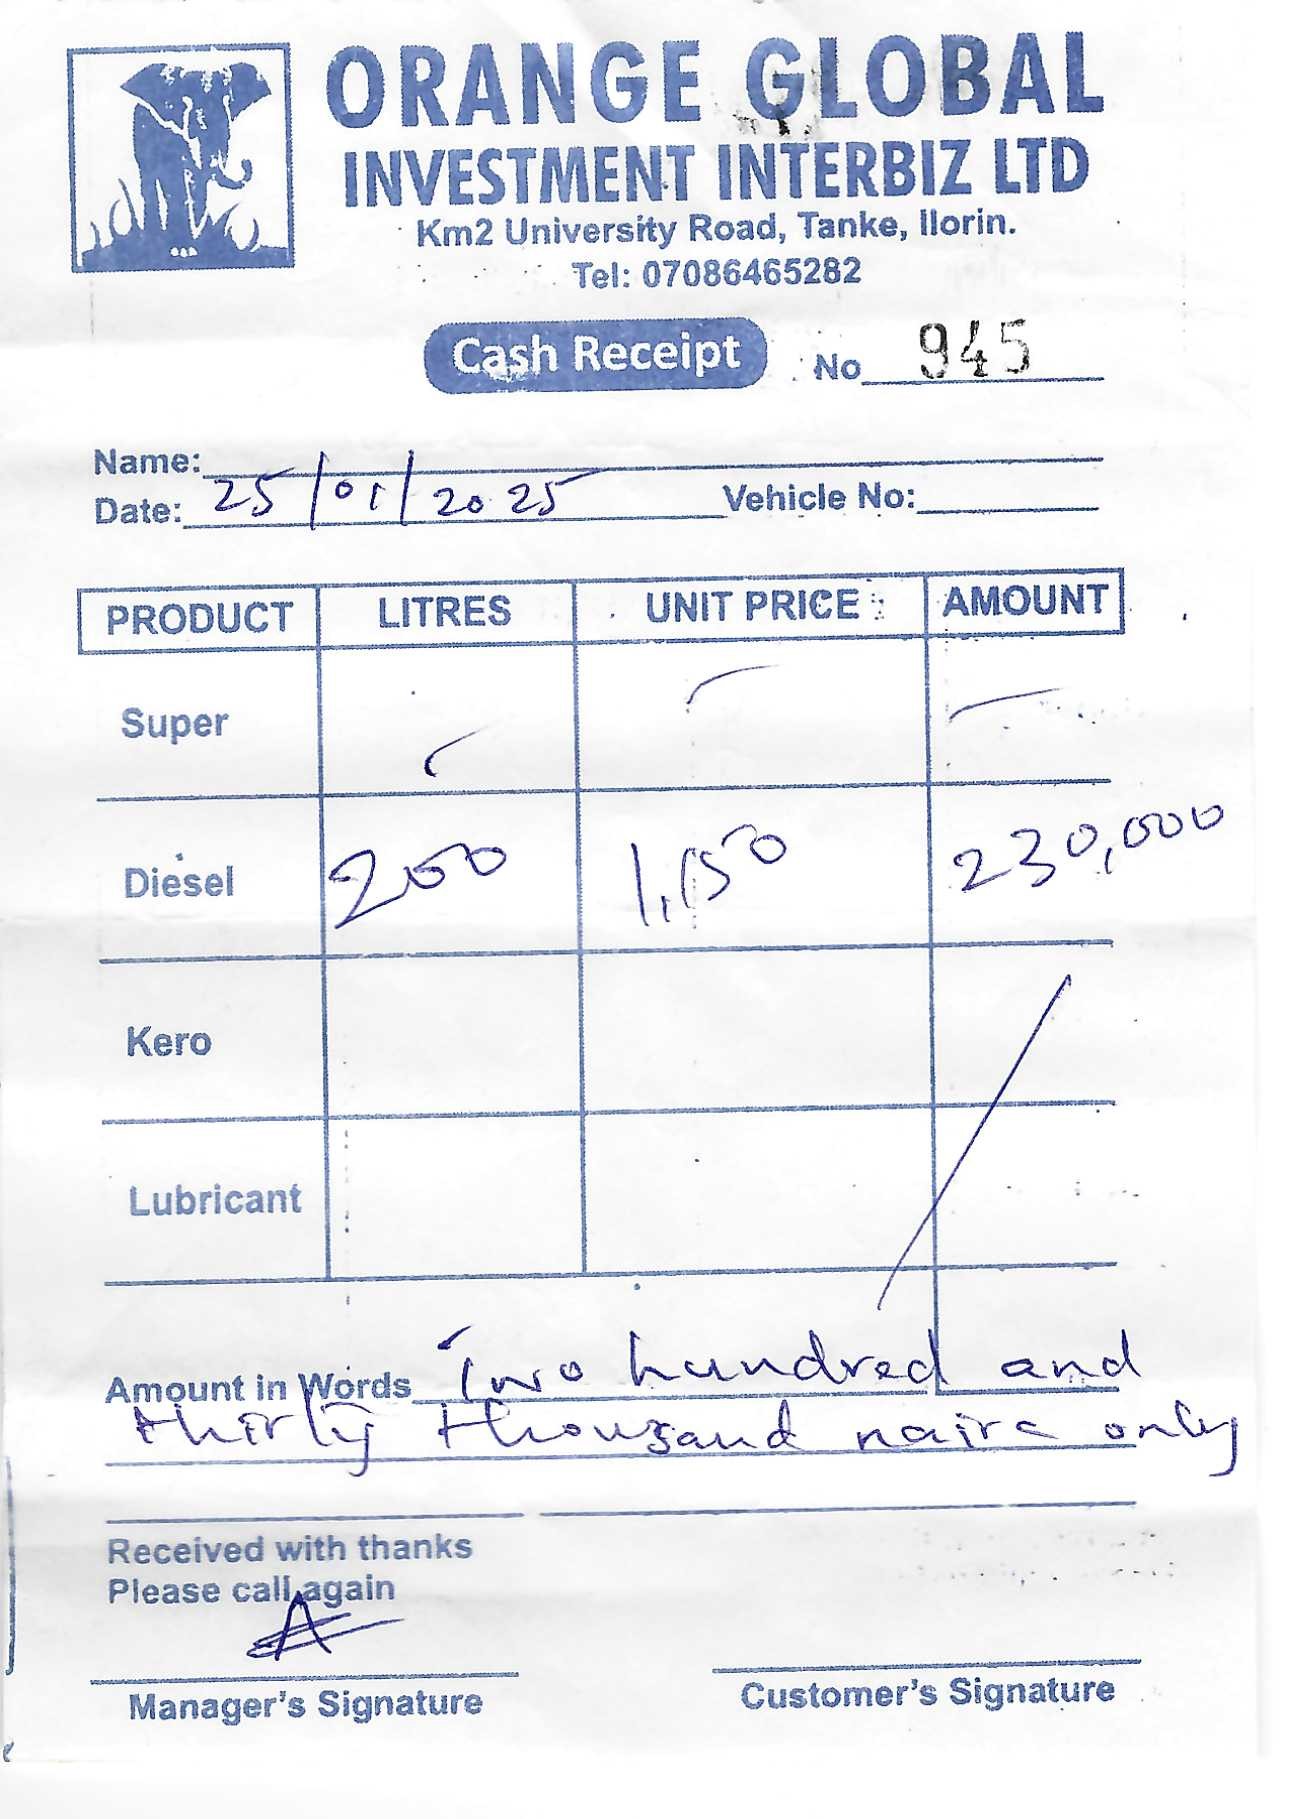 ORANGE GLOBAL
INVESTMENT INTERBIZ LTD
Km2 University Road, Tanke, Ilorin.
Tel: 07086465282
Cash Receipt No 945
Name:
Date: 25/01/2025 Vehicle No:
PRODUCT LITRES UNIT PRICE AMOUNT
Super
Diesel 200 1,150 230,000
Kero
Lubricant
Amount in Words Two hundred and
thirty thousand naira only
Received with thanks
Please call again
Manager's Signature Customer's Signature